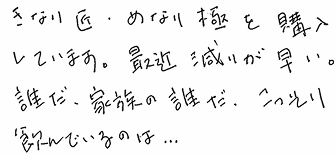 きなり匠・めなり極を購入
しています。最近減りが早い。
誰だ、家族の誰だ、こっそり
飲んでいるのは…